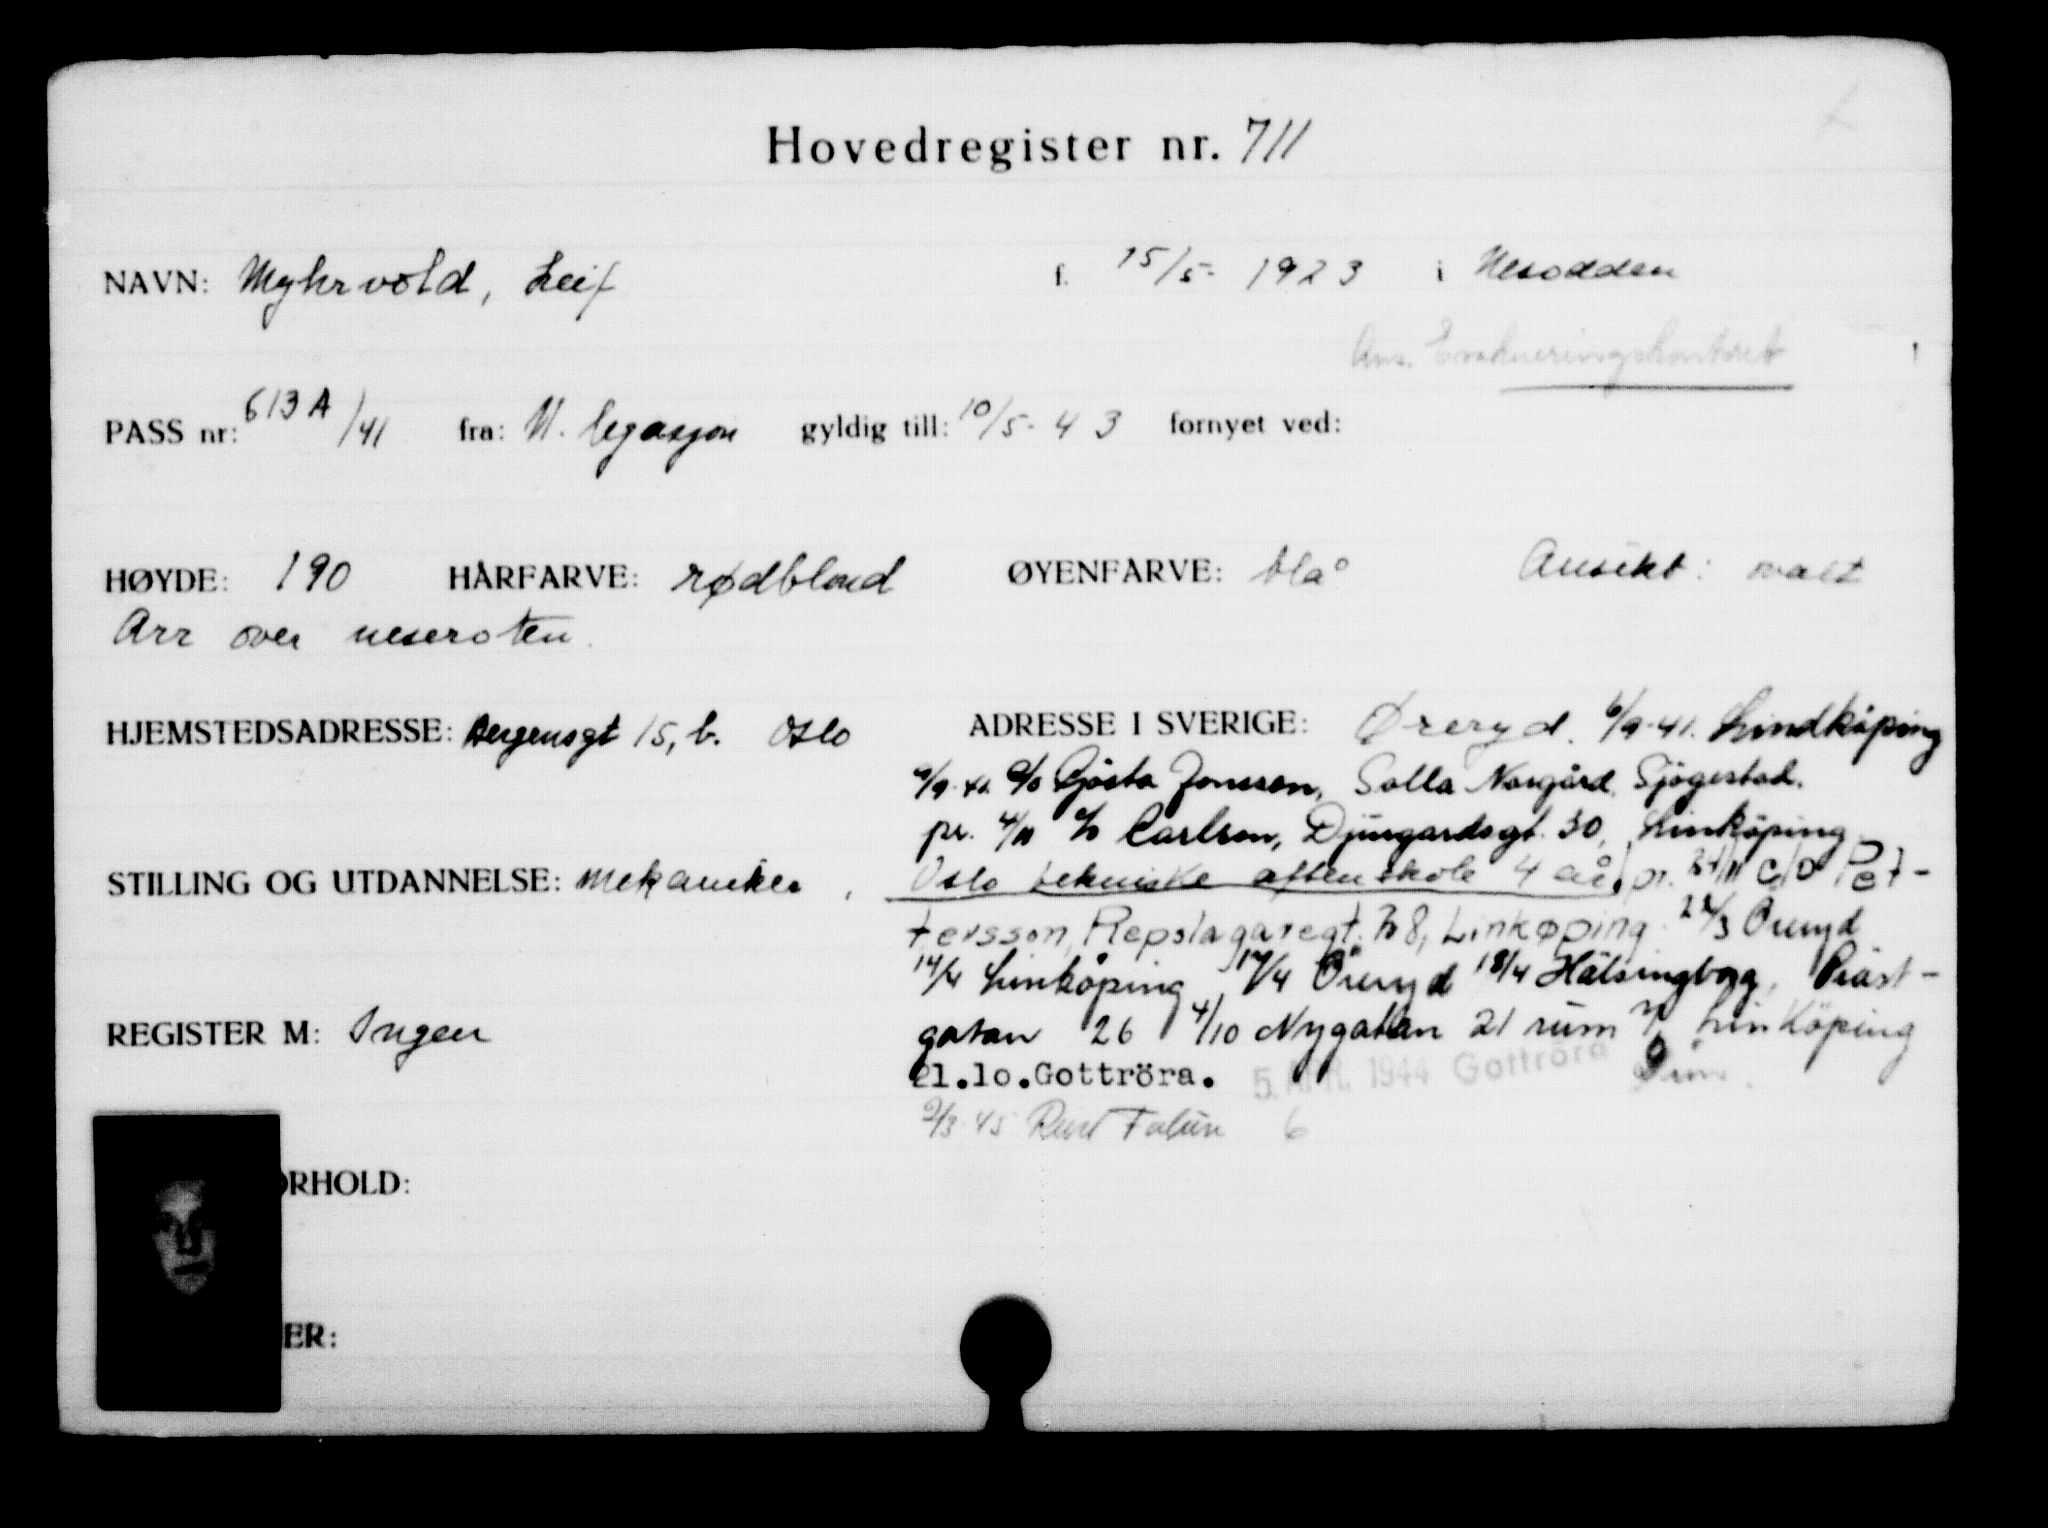 Hovedregister nr. 711
NAVN: Myhrvold, Leif f. 15/5- 1923 i Nesodden
Ans. Evakueringskontoret
PASS nr: 613 A/41 fra: N. legasjon gyldig till: 10/5- 43 fornyet ved:
HØYDE: 190 HÅRFARVE: rødblond ØYENFARVE: blå Ansikt: ovalt
Arr over neseroten.
HJEMSTEDSADRESSE: Bergensgt 15, b. Oslo ADRESSE I SVERIGE: Øreryd. 6/9-41. Lindköping
9/9-41. c/o Gösta Jonsson, Solla Norgård, Sjögestad.
pr. 4/11 c/o Carlson, Djurgardsgt. 30, Linköping
STILLING OG UTDANNELSE: mekaniker, Oslo tekniske aftenskole 4 år. pr. c/o Pet-
tersson, Repslagaregt. 8, Linkøping Öreryd
14/4 Linköping 17/4 Öreryd 18/4 Hälsingborg, Präst-
gatan 26 4/10 Nygatan 21 rum Linköping
REGISTER M: Ingen
21.10.Gottröra. 5. 1944 Gottröra
2/3 45 Falun 6
ORHOLD:
ER: